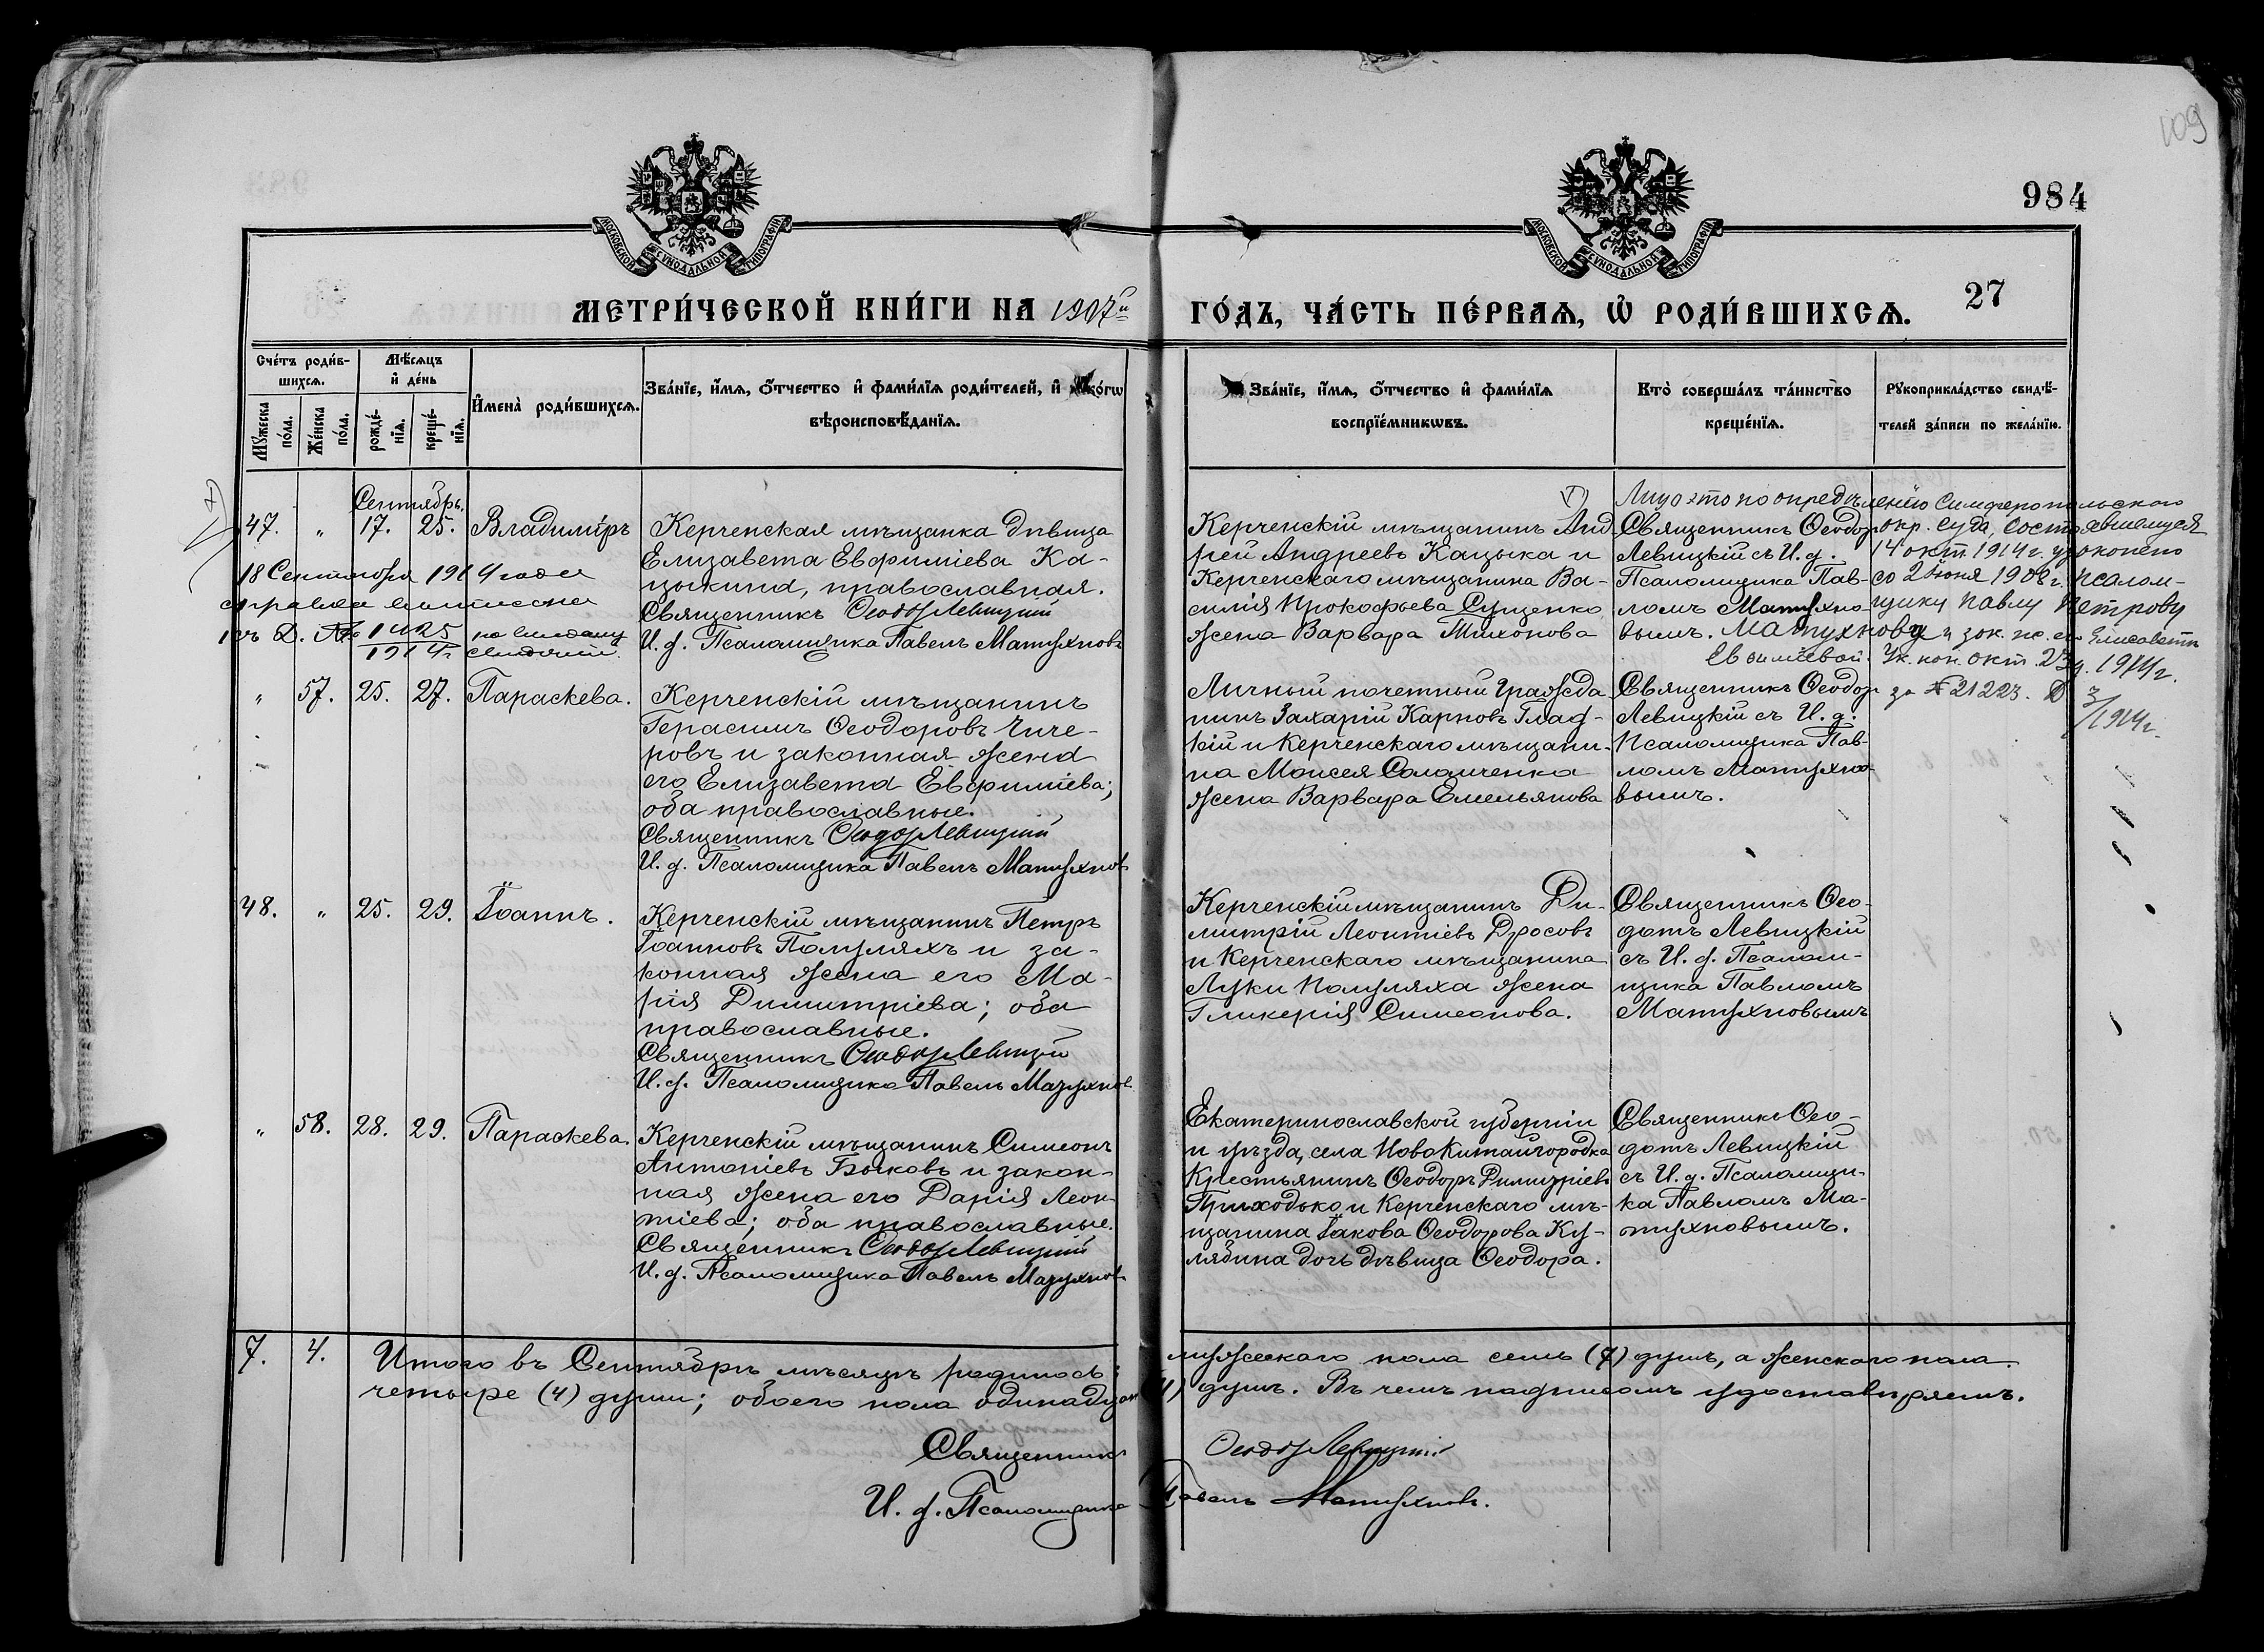 109
984
МОСКОВСКОЙ СѴНОДАЛЬНОЙ ТИПОГРАФІИ
МОСКОВСКОЙ СѴНОДАЛЬНОЙ ТИПОГРАФІИ
МЕТРИ́ЧЕСКОЙ КНИ́ГИ НА 1907й
ГО́ДЪ, ЧА́СТЬ ПЕ́РВАѦ, Ѡ҆ РОДИ́ВШИХСѦ.
27
Сче́тъ роди́в-
шихсѧ.
Мꙋ́жеска по́ла.
Же́нска по́ла.
Мѣ́сѧцъ
и҆ де́нь
рожде́-
нїѧ.
креще́-
нїѧ.
И҆мена̀ роди́вшихсѧ.
Зва́нїе, и҆́мѧ, ѻ҆́тчество и҆ фами́лїѧ роди́телей, и҆ како́гѡ
вѣроисповѣ́данїѧ.
Зва́нїе, и҆́мѧ, ѻ҆́тчество и҆ фами́лїѧ
воспрїе́мникѡвъ.
Кто̀ соверша́лъ та́инство
креще́нїѧ.
Рꙋкоприкла́дство свидѣ́-
телей за́писи по жела́нїю.
Сентябрь.
47. " 17. 25. Владиміръ
Керченская мѣщанка дѣвица
Елизавета Евфиміева Ка-
цыкина, православная.
Священникъ Ѳеодоръ Левицкій
И. д. Псаломщика Павелъ Матухновъ
18 Сентября 1914 года
справка
въ Д. № 1425
1914 г.
Керченскій мѣщанинъ Анд-
рей Андреевъ Кацыка и
Керченскаго мѣщанина Ва-
силія Прокофьева Сущенко
жена Варвара Тихонова
Священникъ Ѳеодоръ
Левицкій съ И. д.
Псаломщика Пав-
ломъ Матухно-
вымъ.
Лицо это по опредѣленію Симферопольскаго
окр. суда, состоявшемуся
14 окт. 1914 г. узаконено
со 2 Іюня 1908 г. псалом-
щику Павлу Петрову
Матухнову и зак. ж. его Елисаветѣ
Евѳиміевой. Ук. кон. окт. 23 д. 1914 г.
за № 21223. Д
3/1914 г.
" 57. 25. 27. Параскева.
Керченскій мѣщанинъ
Герасимъ Ѳеодоровъ Чиче-
ровъ и законная жена
его Елизавета Евфиміева;
оба православные.
Священникъ Ѳеодоръ Левицкій
И. д. Псаломщика Павелъ Матухновъ
Личный почетный Гражда
нинъ Захарій Карповъ Глад-
кій и Керченскаго мѣщани-
на Моисея Соломченка
жена Варвара Емельянова
Священникъ Ѳеодоръ
Левицкій съ И. д.
Псаломщика Пав-
ломъ Матухно-
вымъ.
48. " 25. 29. Іоаннъ.
Керченскій мѣщанинъ Петръ
Іоанновъ Полуляхъ и за-
конная жена его Ма-
рія Димитріева; оба
православные.
Священникъ Ѳеодоръ Левицкій
И. д. Псаломщика Павелъ Матухновъ
Керченскій мѣщанинъ Ди-
митрій Леонтіевъ Дросовъ
и Керченскаго мѣщанина
Луки Полуляха жена
Гликерія Симеонова.
Священникъ Ѳео-
доръ Левицкій
съ И. д. Псалом-
щика Павломъ
Матухновымъ
" 58. 28. 29. Параскева.
Керченскій мѣщанинъ Симеонъ
Антоніевъ Быковъ и закон-
ная жена его Дарія Леон-
тіева; оба православные.
Священникъ Ѳеодоръ Левицкій
И. д. Псаломщика Павелъ Матухновъ
Екатеринославской губерніи
и уѣзда, села Новокитайгородка
Крестьянинъ Ѳеодоръ Димитріевъ
Приходько и Керченскаго мѣ-
щанина Іакова Ѳеодорова Ку-
лябина дочь дѣвица Ѳеодора.
Священникъ Ѳео-
доръ Левицкій
съ И. д. Псаломщи-
ка Павломъ Ма-
тухновымъ.
7. 4. Итого въ Сентябрѣ мѣсяцѣ родилось: мужескаго пола семь (7) душъ, а женскаго пола
четыре (4) души; обоего пола одинадцать (11) душъ. Въ чемъ подписомъ удостовѣряемъ.
Священникъ Ѳеодоръ Левицкій
И. д. Псаломщика Павелъ Матухновъ.